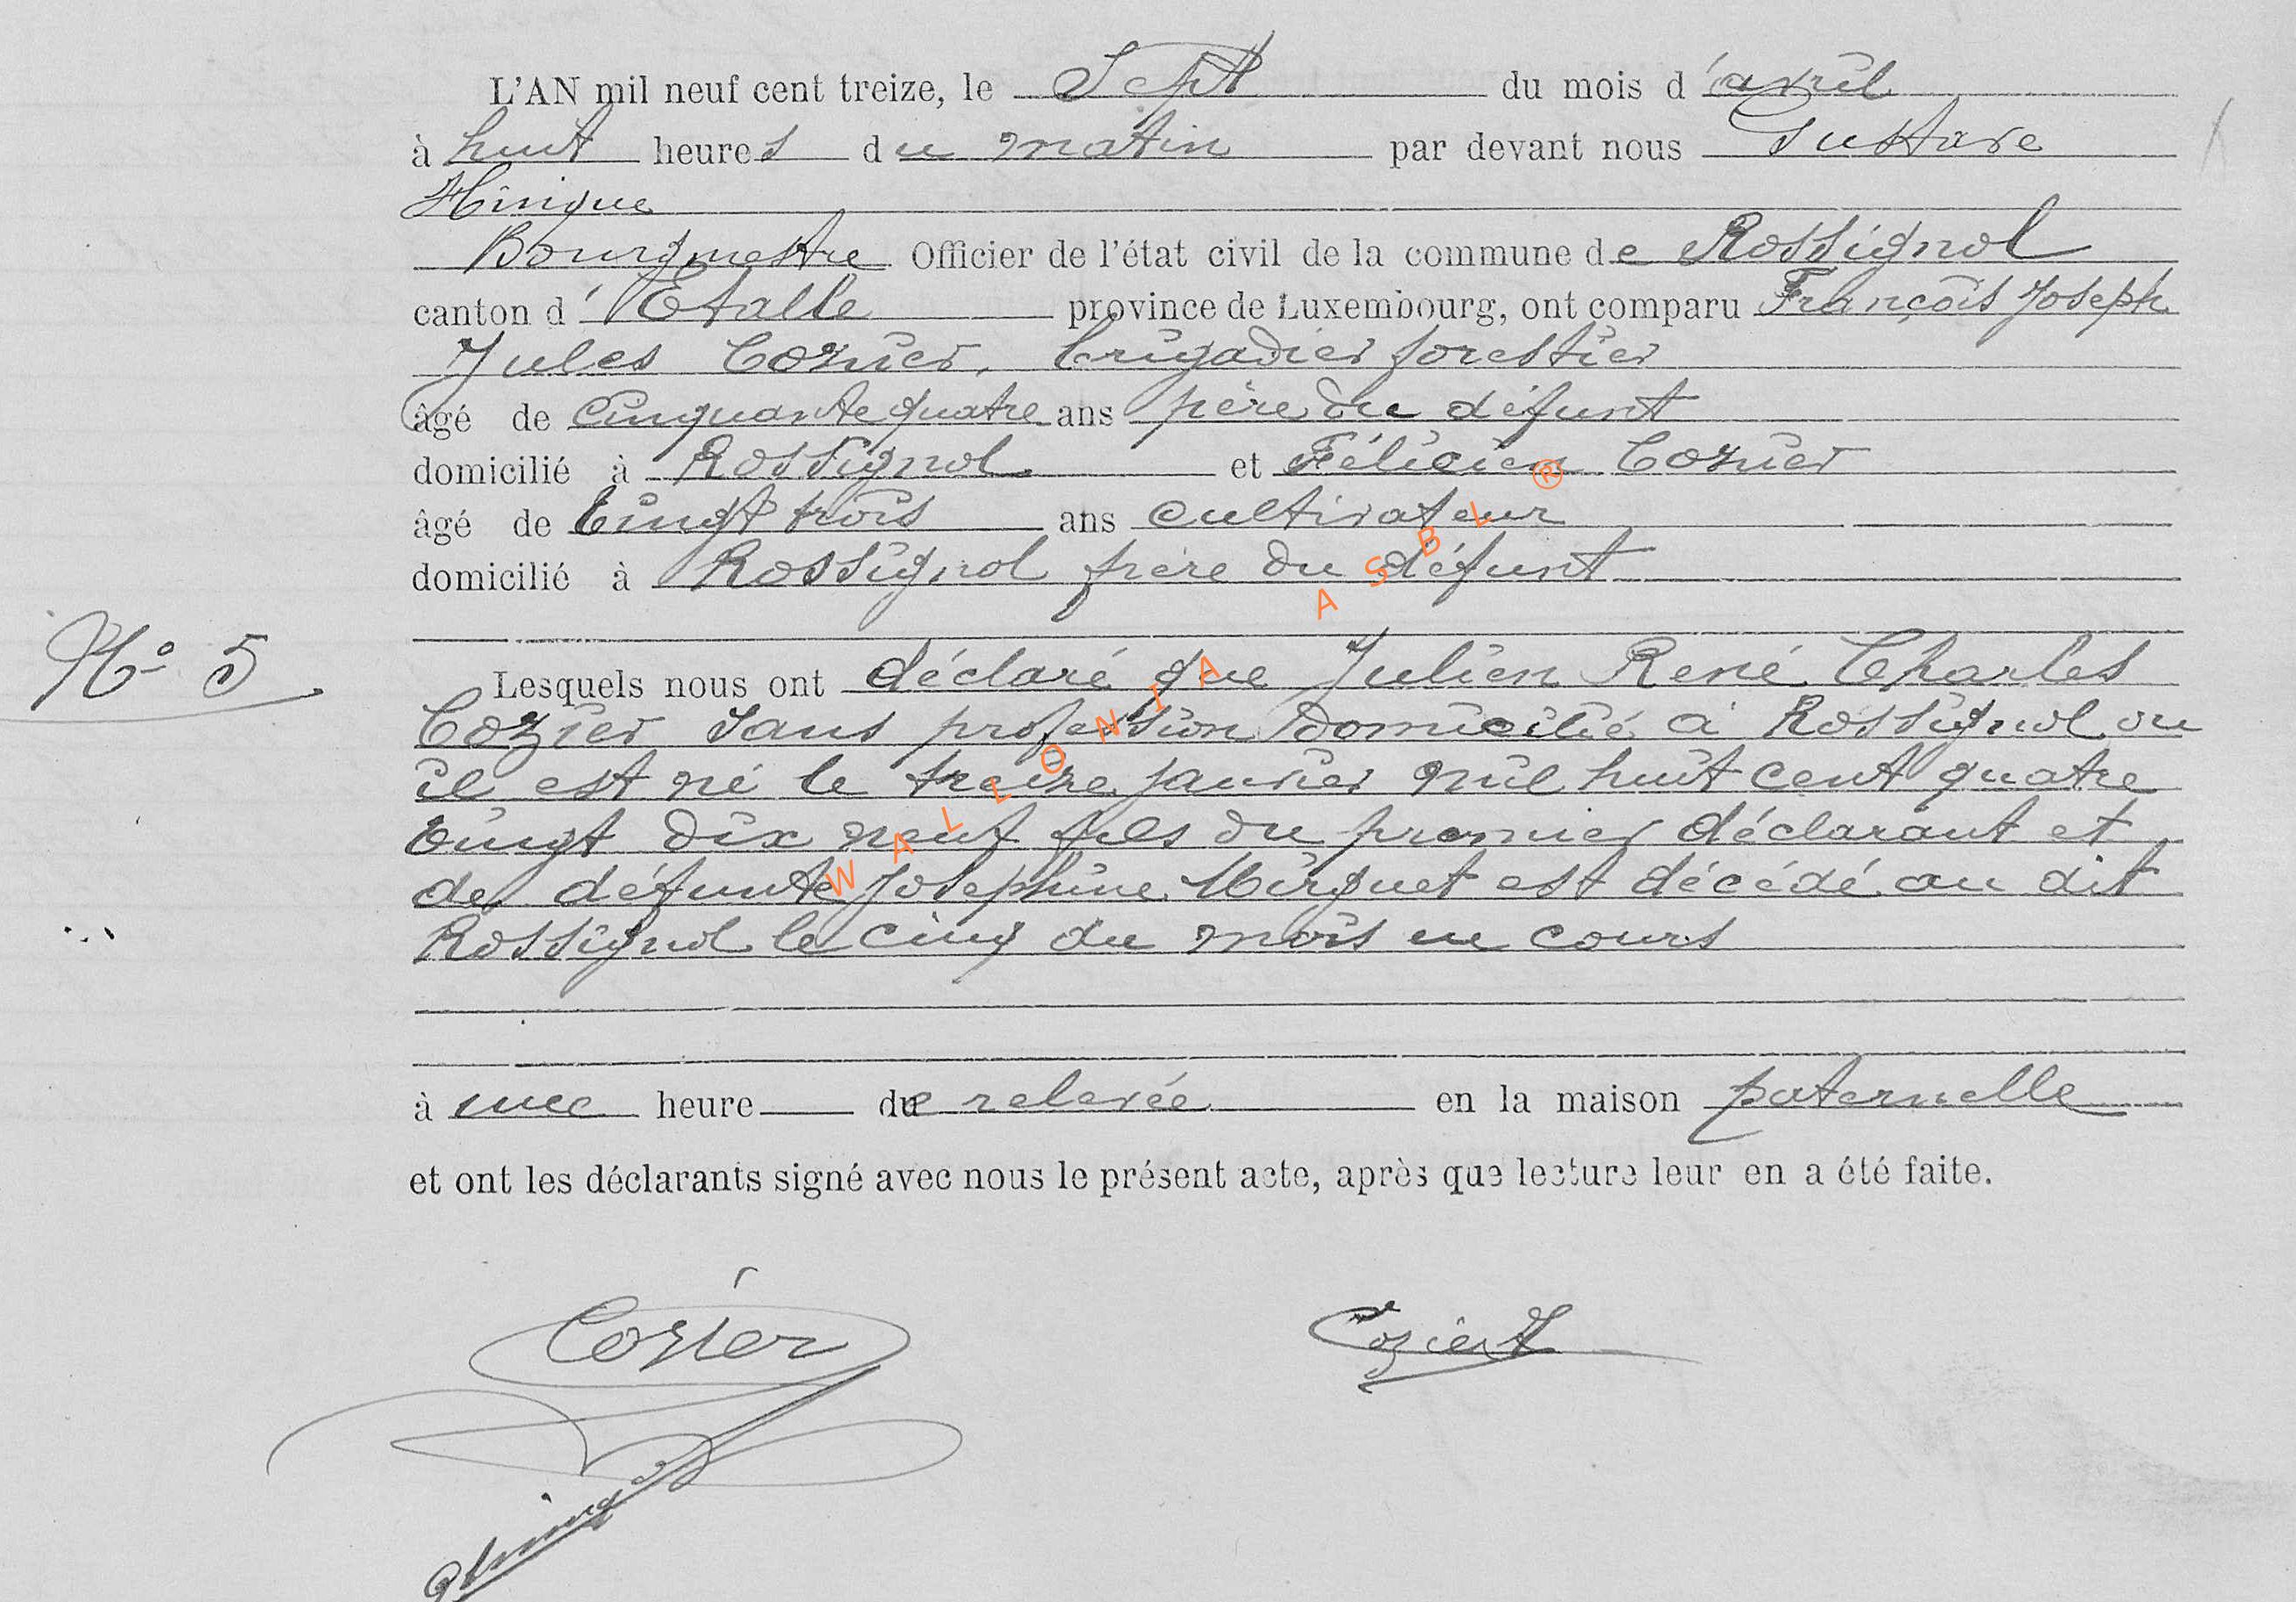 L'AN mil neuf cent treize, le Sept du mois d'avril
à huit heures du matin par devant nous Gustave
Hinique
Bourgmestre Officier de l'état civil de la commune de Rossignol
canton d'Etalle province de Luxembourg, ont comparu François Joseph
Jules Cozier, brigadier forestier
âgé de Cinquante quatre ans père du défunt
domicilié à Rossignol et Félicien Cozier
âgé de Vingt trois ans cultivateur
domicilié à Rossignol frère du défunt
N° 5
Lesquels nous ont déclaré que Julien René Charles
Cozier sans profession domicilié à Rossignol ou
il est né le treize janvier mil huit cent quatre
vingt dix neuf fils du premier déclarant et
de défunte Josephine Mirguet est décédé au dit
Rossignol le cinq du mois en cours
à une heure de relevée en la maison paternelle
et ont les déclarants signé avec nous le présent acte, après que lecture leur en a été faite.
Cozier Cozier
WALLONIA ASBL ®